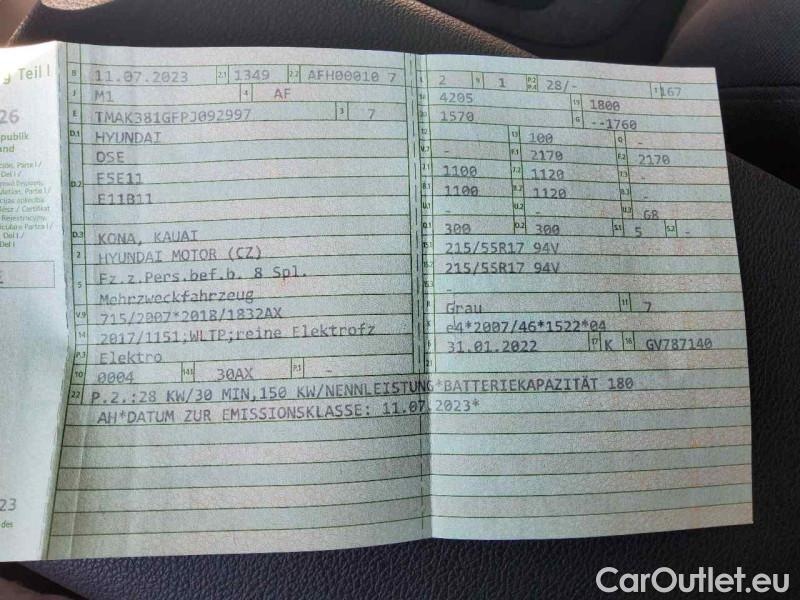 g Teil I
26
publik
and
B 11.07.2023 2.1 1349 2.2 AFH00010 7
J M1 4 AF
E TMAK381GFPJ092997 3 7
D.1 HYUNDAI
OSE
D.2 E5E11
E11B11
D.3 KONA, KAUAI
2 HYUNDAI MOTOR (CZ)
5 Fz.z.Pers.bef.b. 8 Spl.
Mehrzweckfahrzeug
V.9 715/2007*2018/1832AX
14 2017/1151;WLTP;reine Elektrofz
P.3 Elektro
10 0004 14.1 30AX P.1 -
22 P.2.:28 KW/30 MIN,150 KW/NENNLEISTUNG*BATTERIEKAPAZITÄT 180
AH*DATUM ZUR EMISSIONSKLASSE: 11.07.2023*
L 2 9 1 P.2 P.4 28/- T 167
18 4205 19 1800
20 1570 G --1760
12 - 13 100 Q -
V.7 - F.1 2170 F.2 2170
7.1 1100 7.2 1120 7.3 -
8.1 1100 8.2 1120 8.3 -
U.1 - U.2 - U.3 68
O.1 300 O.2 300 S.1 5 S.2 -
15.1 215/55R17 94V
15.2 215/55R17 94V
15.3 -
R Grau 11 7
K e4*2007/46*1522*04
6 31.01.2022 17 K 16 GV787140
21
23
des
CarOutlet.eu